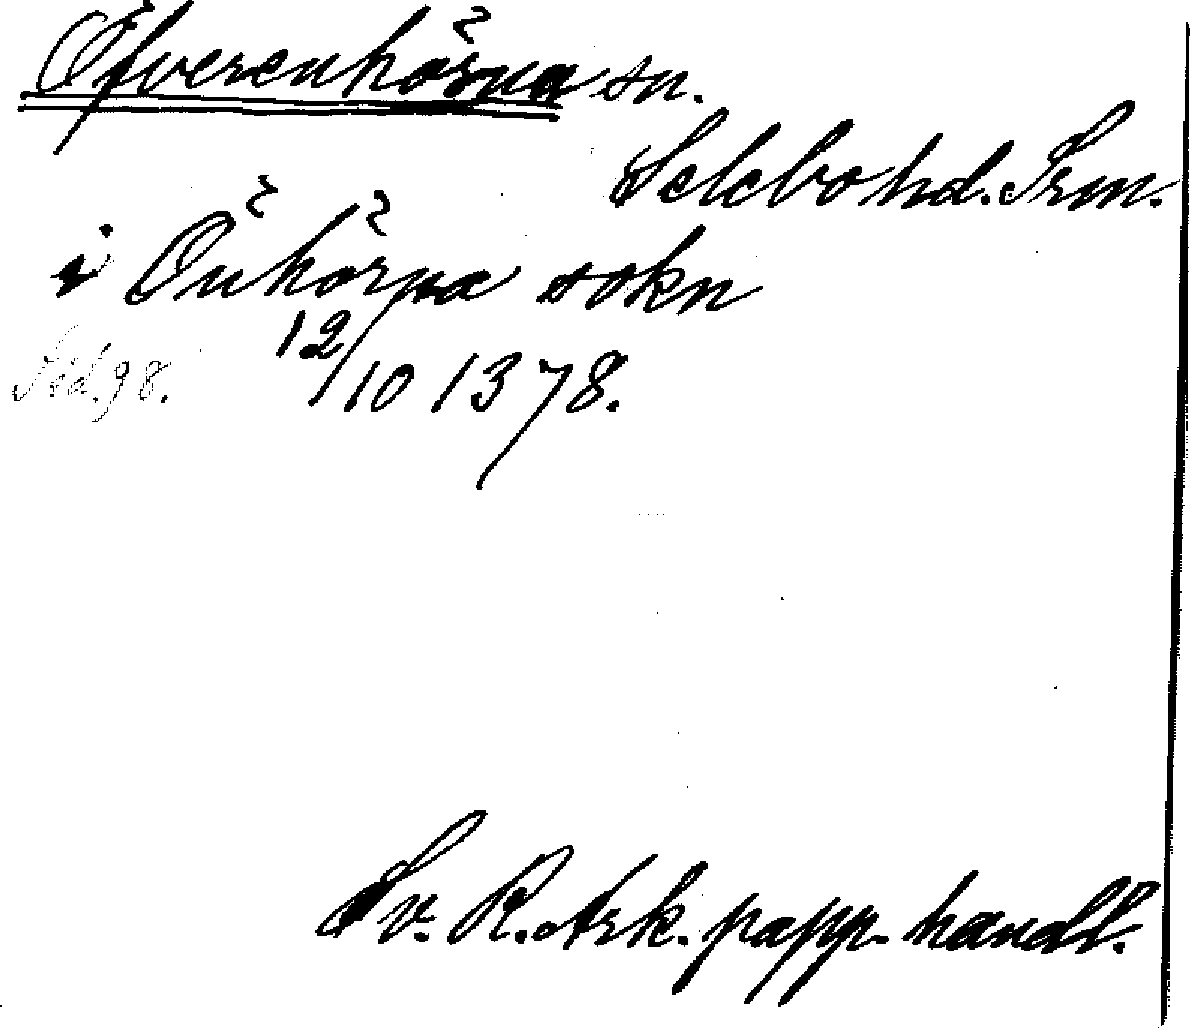 Öfverenhörna sn.
Selebo hd. Srm.
i Önhörna sokn
12/10 1378.
Sv. R. Ark. papp. handl.